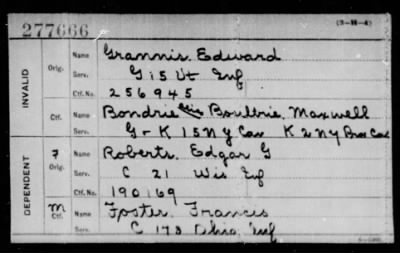 277666
(3-H-4)
INVALID
Orig. Name Grannis Edward
Serv. G 15 Vt Inf
Ctf. No. 256945
Ctf. Name Bondrie alis Boultrie, Maxwell
Serv. G - K 15 N Y Cav K 2 N Y Prov Cav
DEPENDENT
F Orig. Name Roberts, Edgar G
Serv. C 21 Wis Inf
Ctf. No. 190169
M Ctf. Name Foster, Francis
Serv. C 178 Ohio Inf